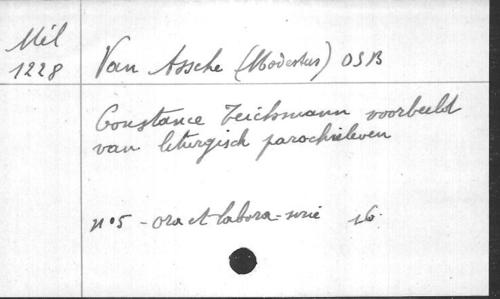 Mél
1228
Van Assche (Modestus) OSB
Constance Teichmann voorbeeld
van liturgisch parochieleven
n°5 - ora et labora - serie 16.